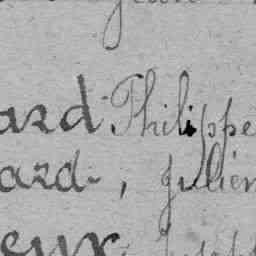 ard Philippe
ard, Julien
eux